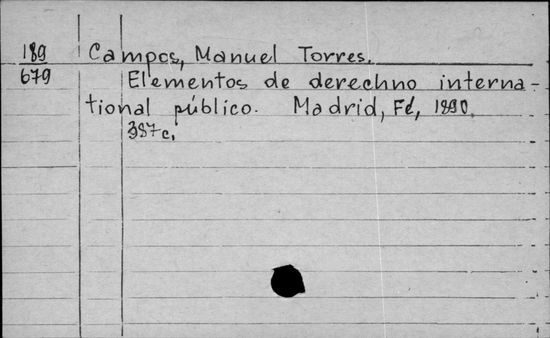 189 Campos, Manuel Torres.
679 Elementos de derechno interna-
tional público. Madrid, Fé, 1890.
387c.